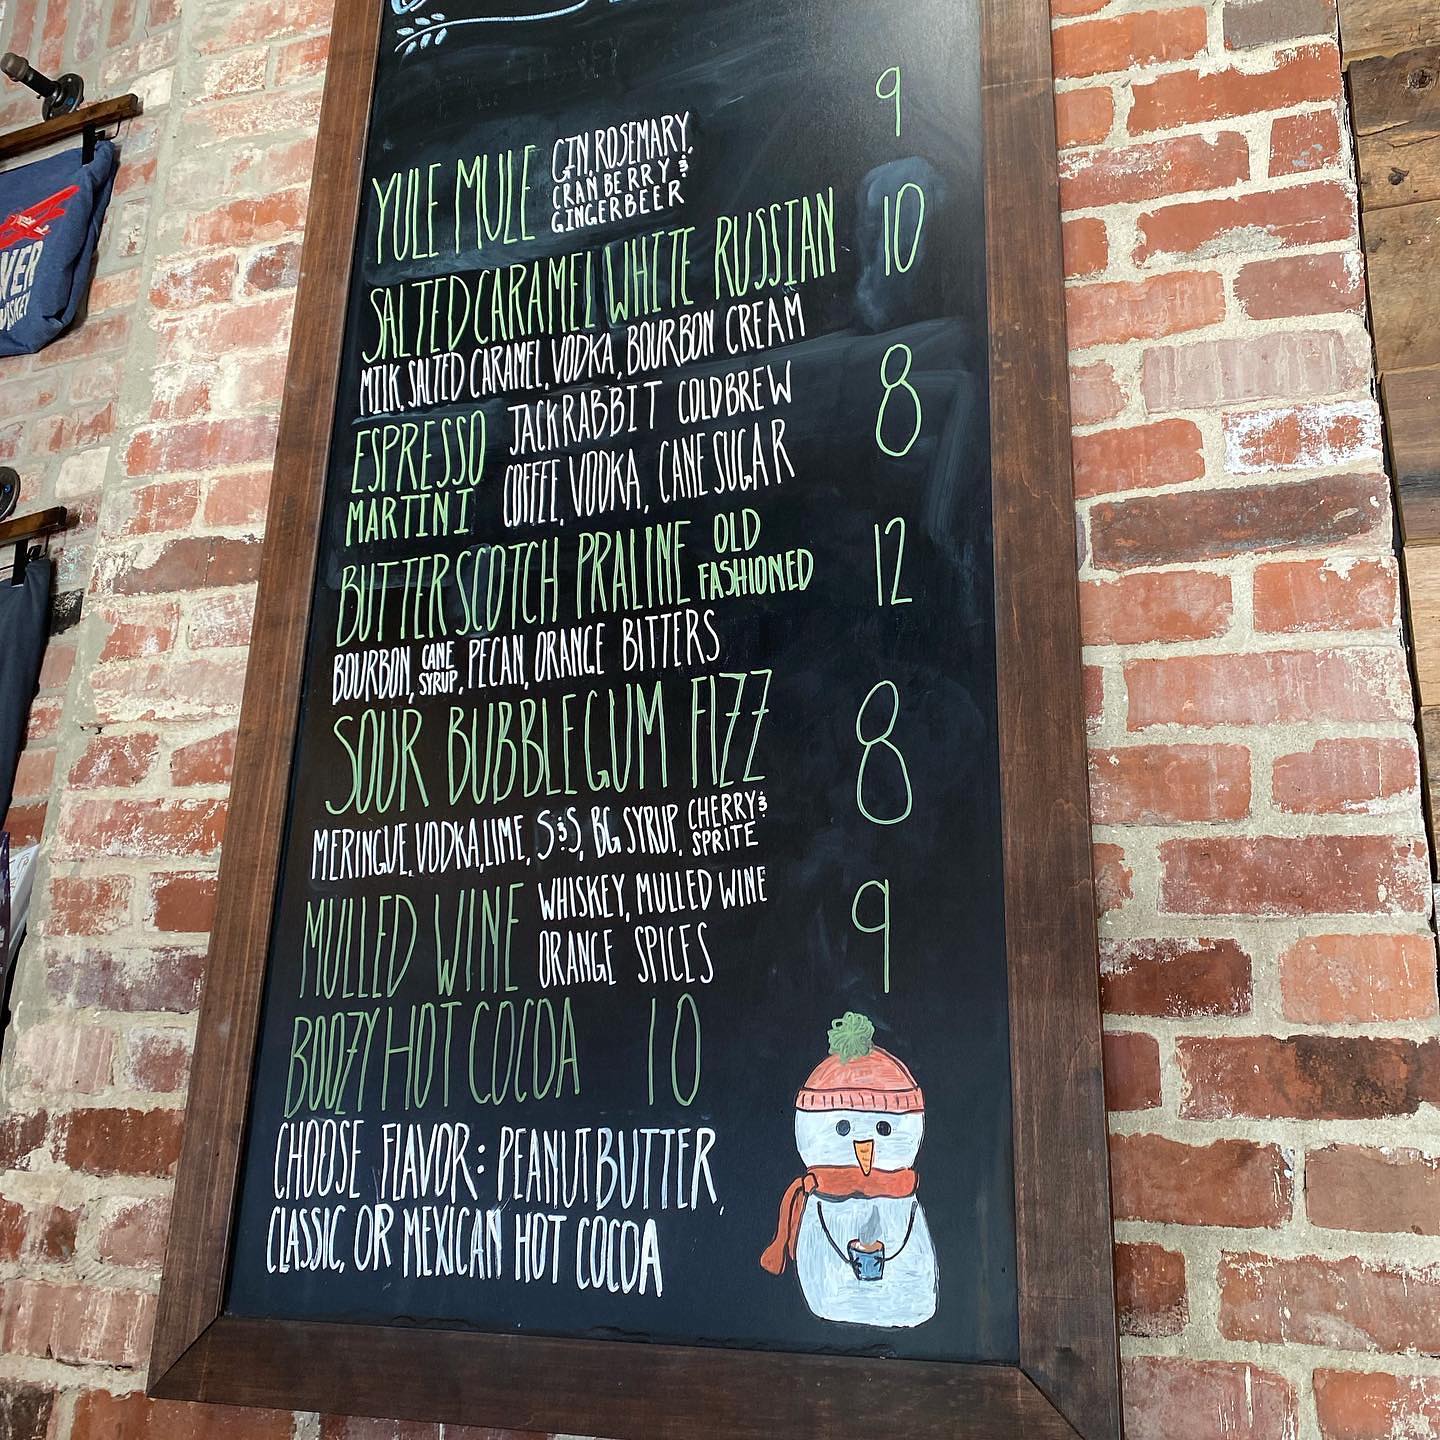 YULE MULE GIN, ROSEMARY, 9
CRANBERRY &
GINGERBEER
SALTED CARAMEL WHITE RUSSIAN 10
MILK, SALTED CARAMEL, VODKA, BOURBON CREAM
ESPRESSO JACKRABBIT COLDBREW 8
MARTINI COFFEE, VODKA, CANE SUGAR
BUTTERSCOTCH PRALINE OLD 12
FASHIONED
BOURBON, CANE SYRUP, PECAN, ORANGE BITTERS
SOUR BUBBLEGUM FIZZ 8
MERINGUE, VODKA, LIME, S&S, BG SYRUP, CHERRY &
SPRITE
MULLED WINE WHISKEY, MULLED WINE 9
ORANGE SPICES
BOOZY HOT COCOA 10
CHOOSE FLAVOR: PEANUTBUTTER,
CLASSIC, OR MEXICAN HOT COCOA